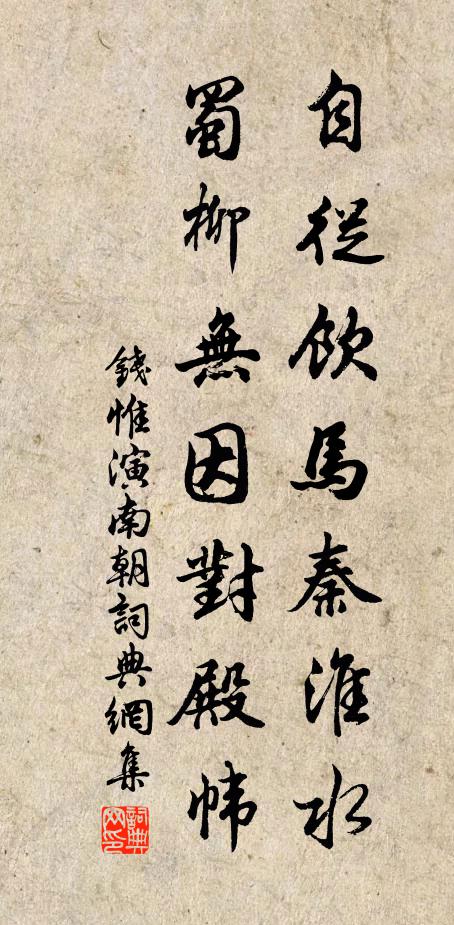 自從飲馬秦淮水
蜀柳無因對殿幃
錢惟演南朝詞典網集
詞典網印